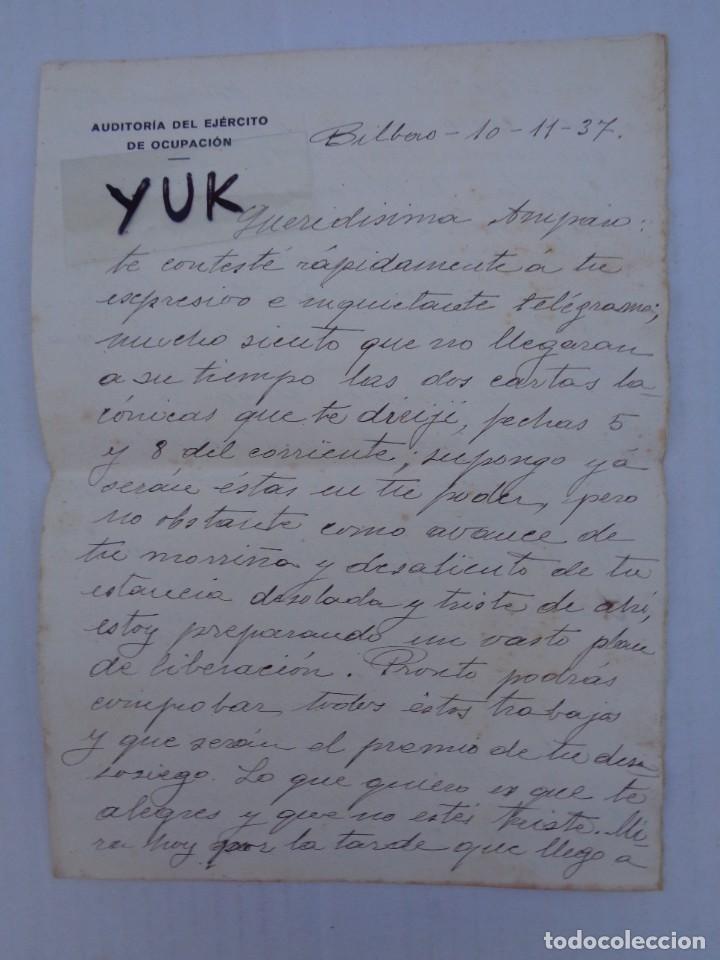 AUDITORÍA DEL EJÉRCITO
DE OCUPACIÓN
Bilbao - 10 - 11 - 37.
YUK
Queridisima Amparo:
te contesté rápidamente á tu
expresivo e inquietante telégrama;
mucho siento que no llegaran
a su tiempo las dos cartas la-
cónicas que te dirijí, fechas 5
y 8 del corriente; supongo yá
serán éstas en tu poder, pero
no obstante como avance de
tu morriña y desaliento de tu
estancia desolada y triste de ahí,
estoy preparando un vasto plan
de liberación. Pronto podrás
comprobar todos éstos trabajos
y que serán el premio de tu desa-
sosiego. Lo que quiero es que te
alegres y que no estés triste. Mi-
ra hoy por la tarde que llego a
todocoleccion
todocoleccion.net